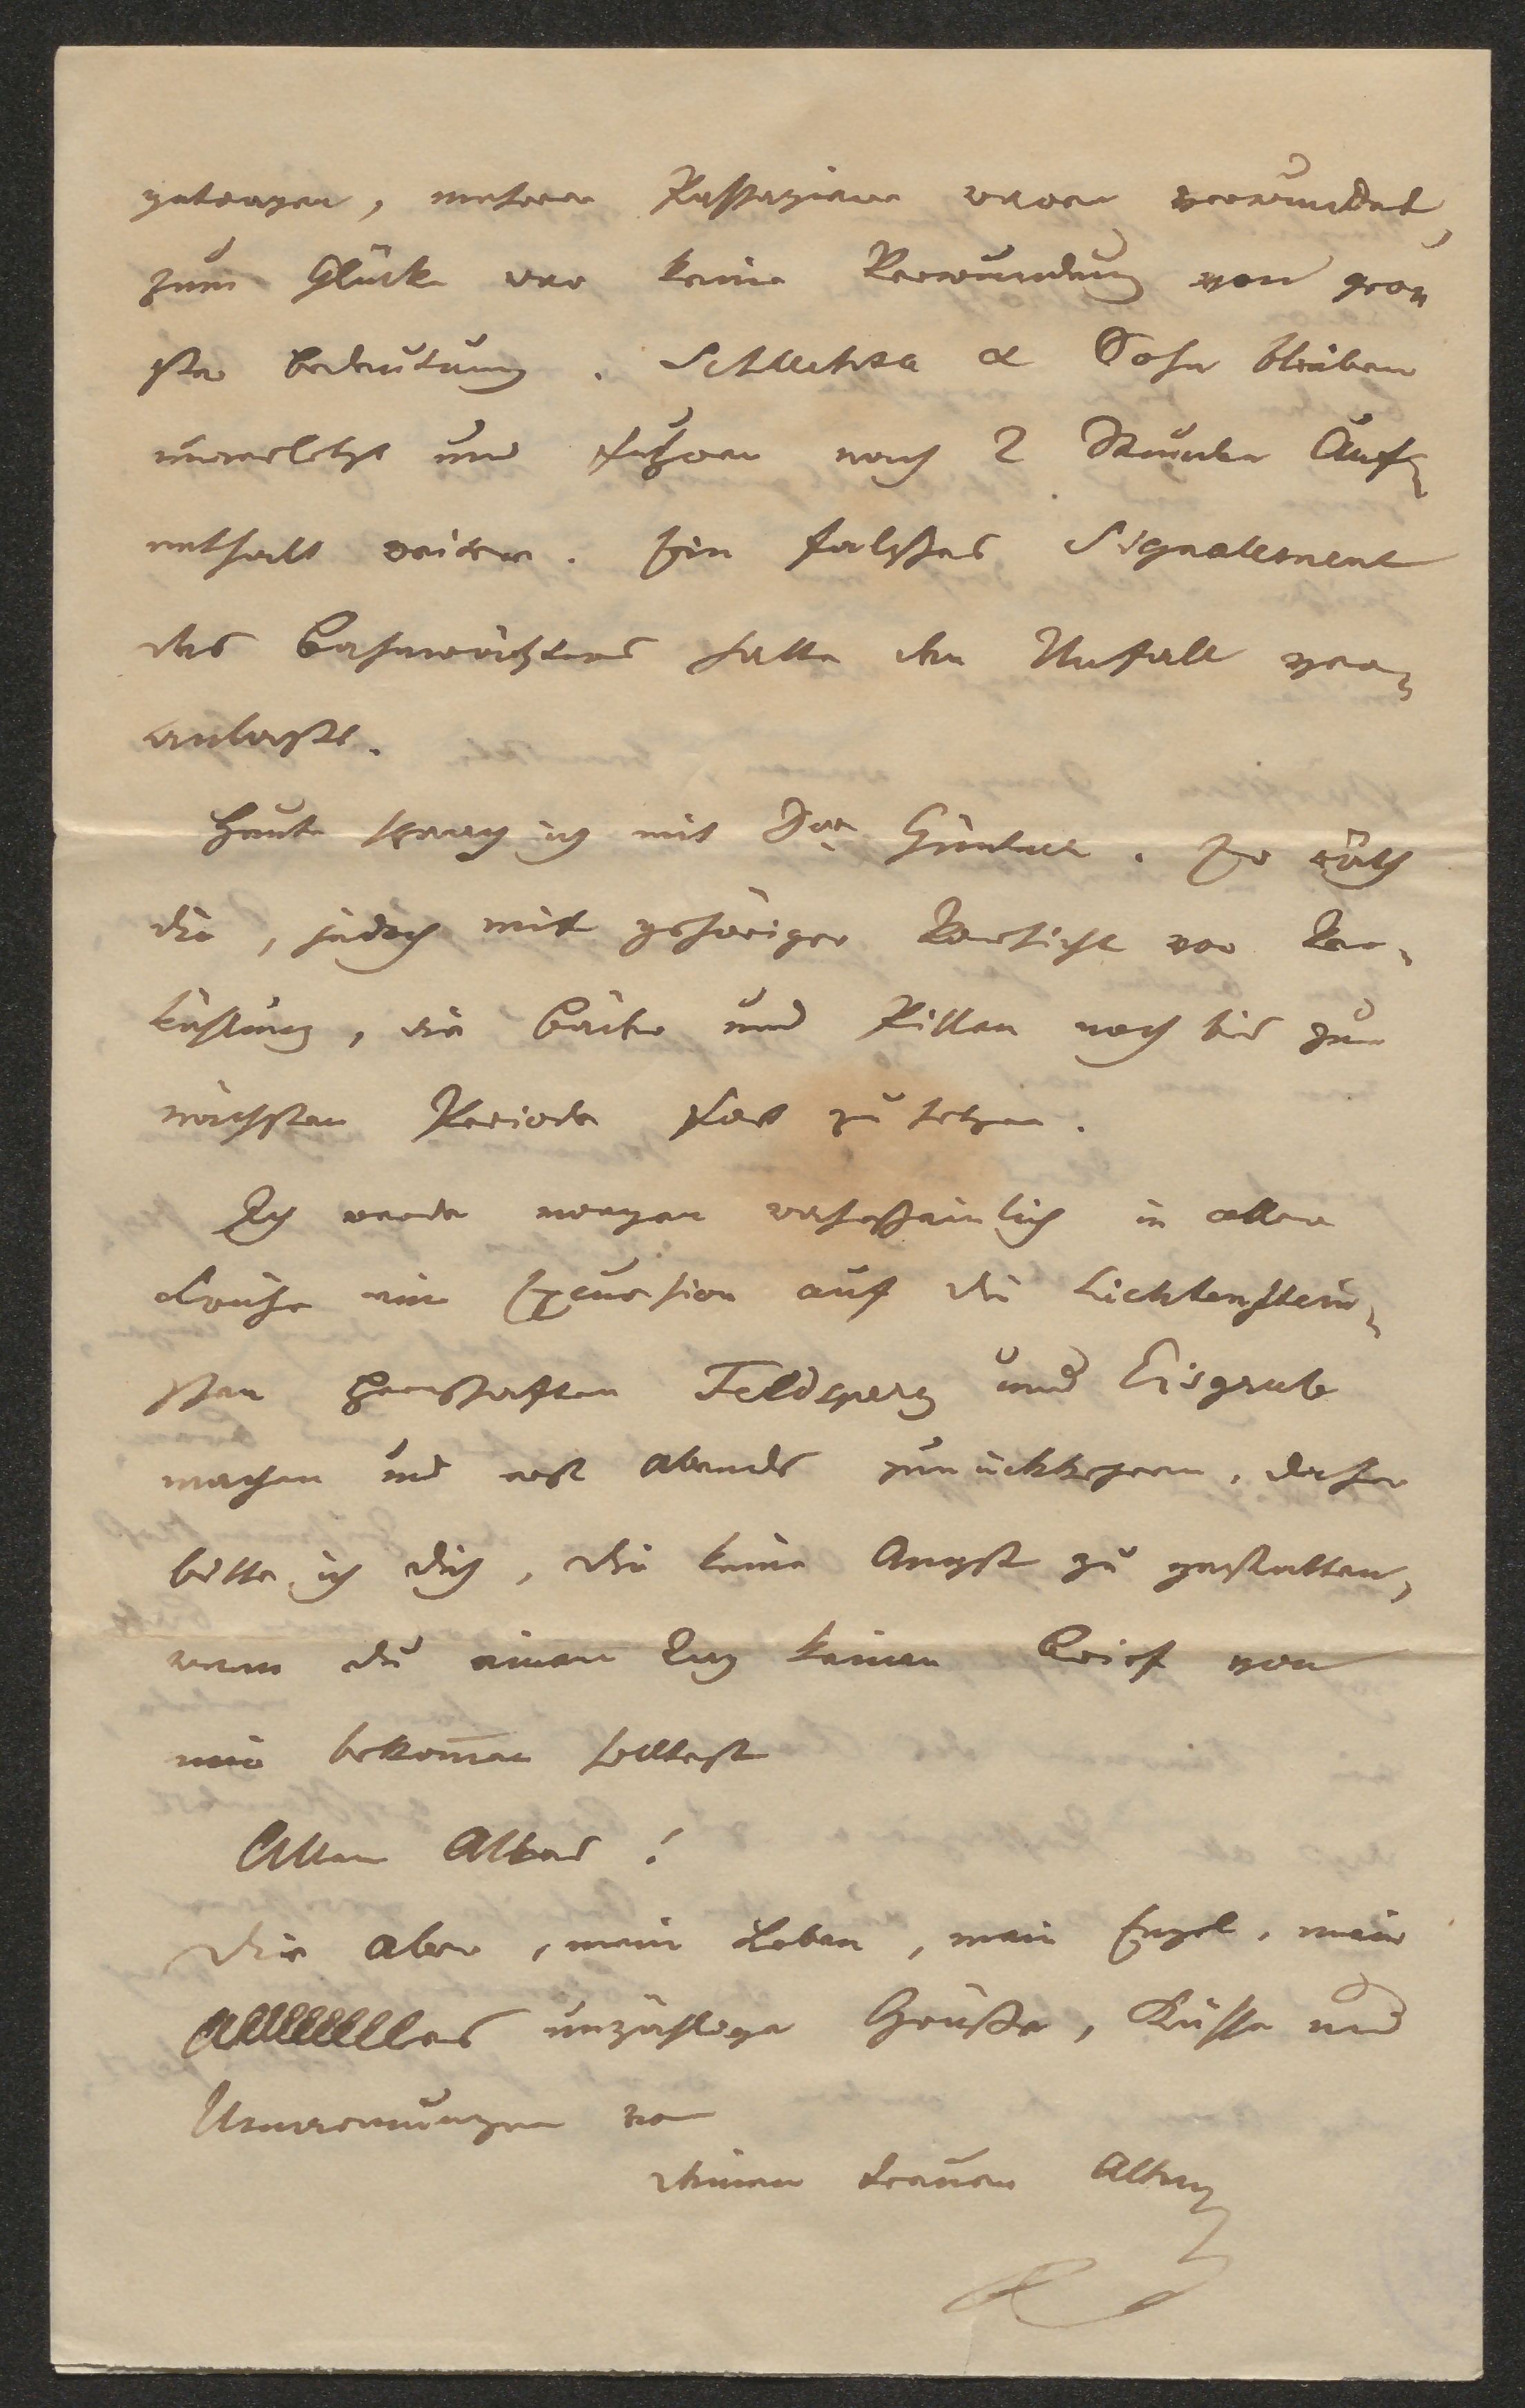 getragen, mehrere Passagiere waren verwundet,
zum Glücke war keine Verwundung von gro¬
ßer Bedeutung. Schlechta & Sohn blieben
unverletzt und fuhren nach 2 Stunden Auf¬
enthalt weiter. Ein falsches Signalement
des Bahnwächters hatte den Unfall ver¬
anlaßt.
Heute sprach ich mit Dor Güntner. Er räth
dir, jedoch mit gehöriger Vorsicht vor Ver¬
kühlung, die Bäder und Pillen noch bis zur
nächsten Periode fort zu setzen.
Ich werde morgen wahrscheinlich in aller
Frühe eine Excursion auf die Lichtenstein¬
schen Herrschaften Feldsperg und Eisgrub
machen und erst abends zurückkehren, daher
bitte ich dich, dir keine Angst zu gestatten,
wenn du einen Tag keinen Brief von
mir bekom̄en solltest
Allen Alles!
Dir aber, mein Leben, mein Engel, mein
Alllllllles unzählige Grüße, Küsse und
Umarmungen von
deinem treuen